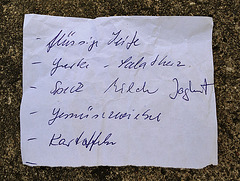 - flüssige Seife
- Gurke - Salatherz.
- Speck Milch Joghurt
- Gemüsezwiebel
- Kartoffeln
-